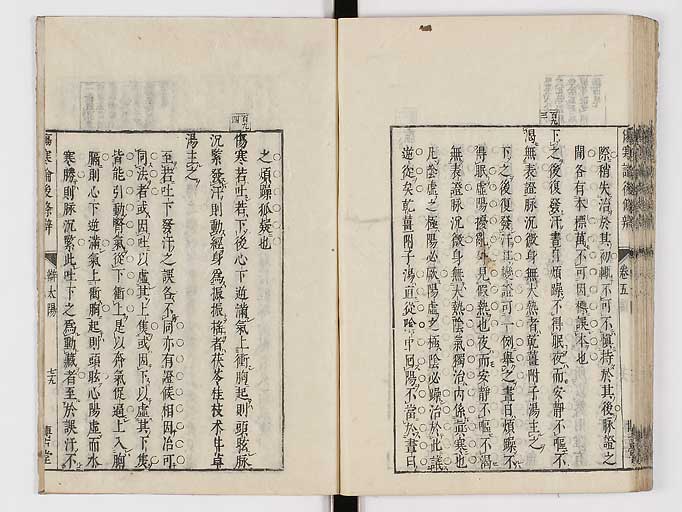 際稍失治於其初輙不可不慎持於其後脉證之
間各有本標萬不可因標誤本也
百九三
下之後復發汗晝日煩躁不得眠夜而安靜不嘔不
渴無表證脉沉微身無大熱者乾薑附子湯主之
下之後復發汗其變證可一例舉之晝日煩躁不
得眠虛陽擾亂外見假熱也夜而安靜不嘔不渴
無表證脉沉微身無大熱陰氣獨治內係真寒也
凡陰虛之極陽必厥陽虛之極陰必躁治於此證
從矣乾薑附子湯直從陰中回陽不當於晝日
傷寒論後條辨
卷五
之煩躁狐疑也
百九四
傷寒若吐若下後心下逆滿氣上衝胸起則頭眩脉
沉緊發汗則動經身為振振搖者茯苓桂枝木甘草
湯主之
至若吐下發汗之誤各不同亦有證候相因治可
同法者或因吐以虛其上焦或因下以虛其下焦
皆能引動腎氣從下衝上是以奔氣促逼上入胸
膈則心下逆滿氣上衝胸起則頭眩心陽虛而水
寒勝則脉沉緊此吐下之為動臟者至於誤汗不
傷寒論後條辨
辨太陽
七九